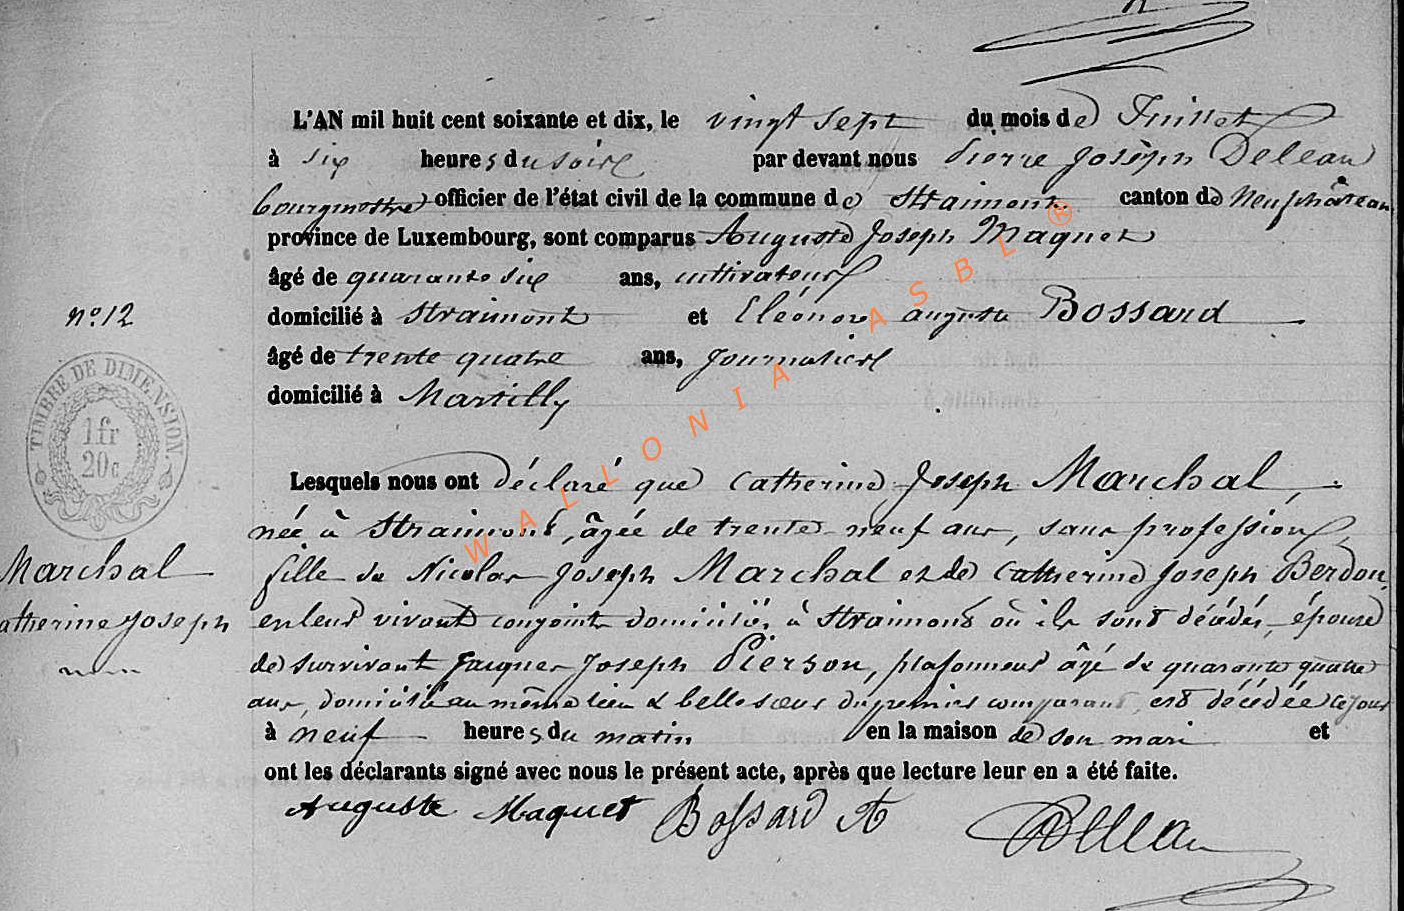 L'AN mil huit cent soixante et dix, le vingt sept du mois de Juillet
à six heures du soir par devant nous Pierre Joseph Deleau
bourgmestre officier de l'état civil de la commune de Straimont canton de Neufchâteau
province de Luxembourg, sont comparus Auguste Joseph Maquet
âgé de quarante six ans, cultivateur
domicilié à Straimont et Eléonore auguste Bossard
âgé de trente quatre ans, journalier
domicilié à Martilly
Lesquels nous ont déclaré que Catherine Joseph Marchal,
née à Straimont, âgée de trente neuf ans, sans profession,
fille de Nicolas Joseph Marchal et de Catherine Joseph Berdou,
en leur vivant conjoints domiciliés à Straimont où ils sont décédés, épouse
de survivant Jacques Joseph Pierson, plafonneur âgé de quarante quatre
ans, domicilié au même lieu & belle sœur du premier comparant est décédée ce jour
à neuf heures du matin en la maison de son mari et
ont les déclarants signé avec nous le présent acte, après que lecture leur en a été faite.
Auguste Maquet Bossard A Deleau
n° 12
TIMBRE DE DIMENSION.
1 fr
20 c
Marchal
atherine Joseph
WALLONIA ASBL ®